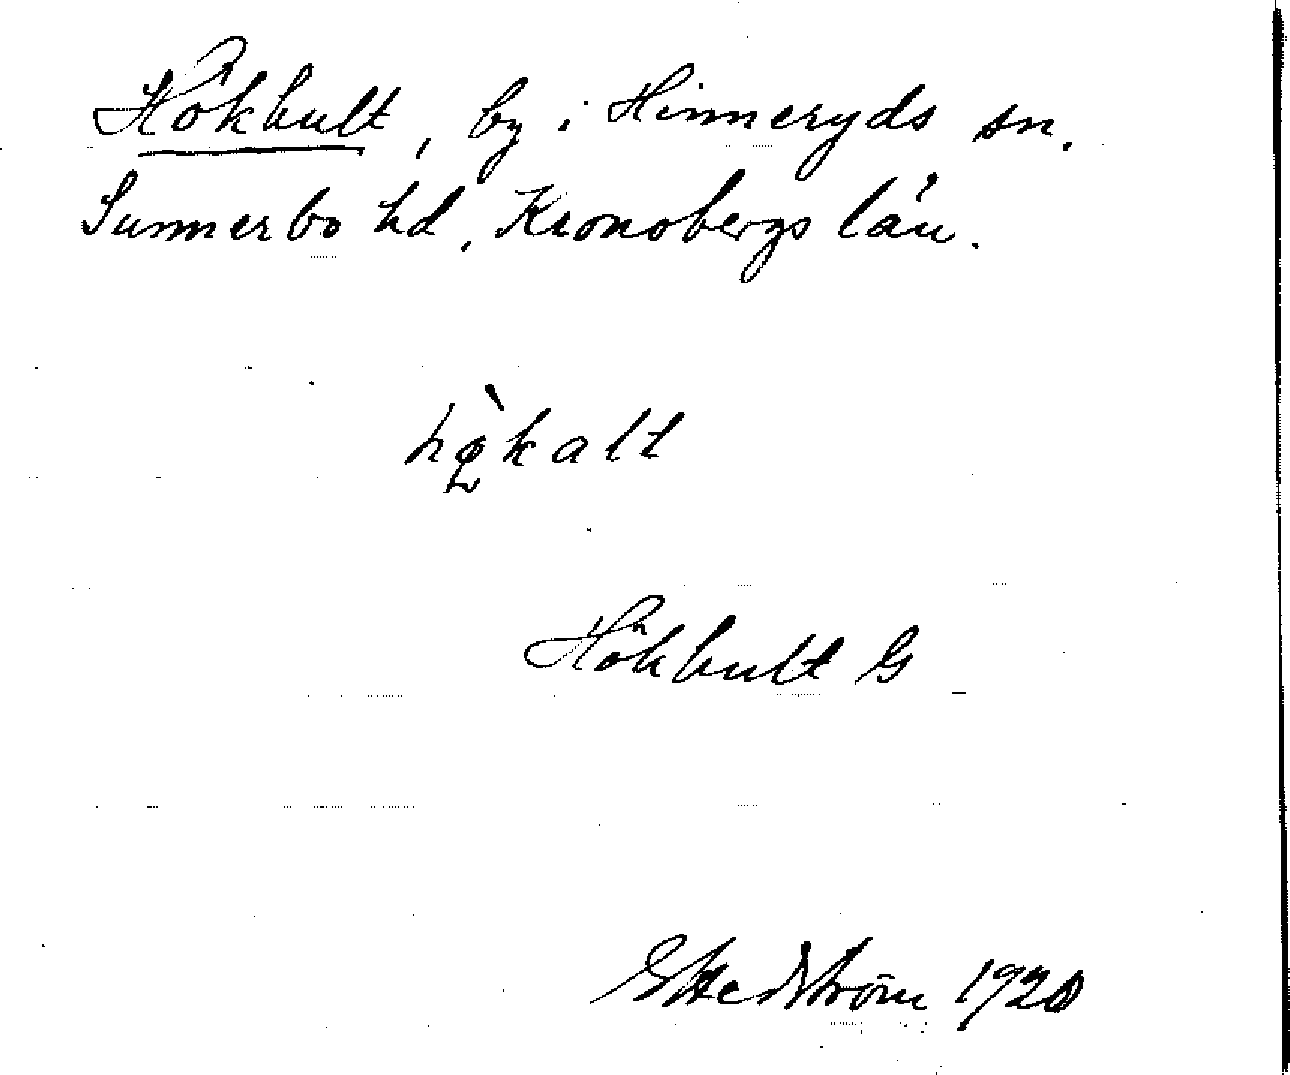 Hökhult, by i Hinneryds sn.
Sunnerbo hd, Kronobergs län.
hø̀kalt
Hökhult G
G Hedström 1920